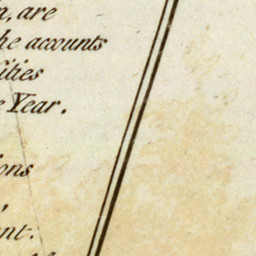 are
he accounts
ities
Year.
ons
nt.